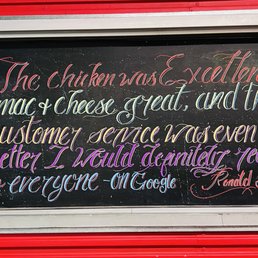 The chicken was Excellen
mac & cheese great, and th
ustomer service was even
etter I would definitely re
everyone - on Google Ronald